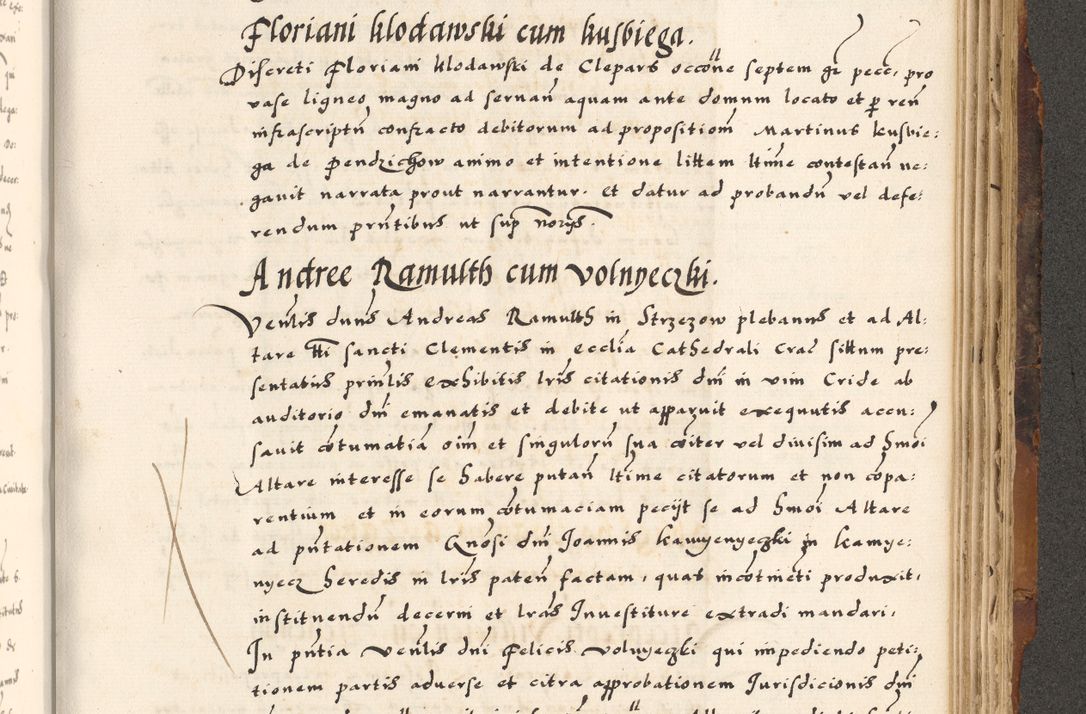 Floriani klodawski cum kusbiega.
Discreti Floriani klodawski de Clepars occõne septem gr pecc, pro
vase ligneo magno ad servañ aquam ante domum locato et p reñ
infrascriptũ confracto debitorum ad propositiom̃ Martinus kusbie:
ga de Pendzichow animo et intentione littem ltĩme contestañ ne:
gavit narrata prout narrantur. et datur ad probandũ vel defe:
rendum pr̃ntibus ut sup
Andree Ramulth cum Volnyeczki.
Venlis duns Andreas Ramulth in Strzezow plebanus et ad Al:
tare tti sancti Clementis in ecclia Cathedrali Crac̃ sittum pre:
sentatus prinlis exhibitis lris citationis dñi in vim Cride ab
auditorio dñi emanatis et debite ut apparuit exequutis accu:
savit cõtumatiã oim̃ et singulorũ sua cõiter vel divisim ad hmoi
Altare interesse se habere putañ ltĩme citatorum et non cõpa:
rentium et in eorum cõtumaciam pecijt se ad hmoi Altare
ad pñtationem Gnosi dñi Joannis kawyenyeczki in kamye:
nyecz heredis in lris pateñ factam, quas incõtinẽti produxit,
instituendũ decerni et lras Investiture extradi mandari,
In pñtia Venlis dñi Felicis Volnyeczki qui impediendo peti:
tionem partis adverse et citra approbationem Jurisdicionis dñi